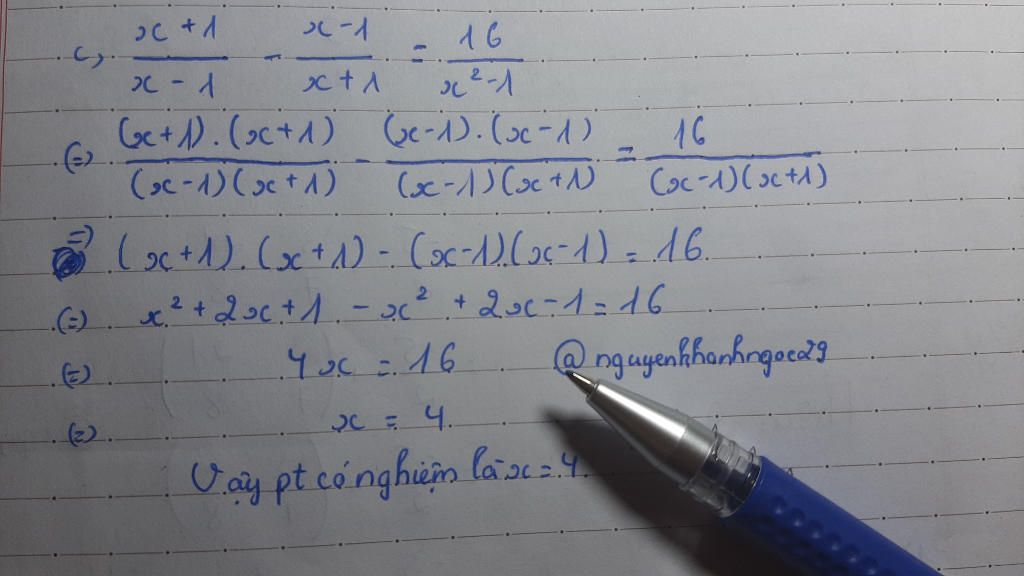 c, (x + 1)/(x - 1) - (x - 1)/(x + 1) = 16/(x² - 1)
(=) (x+1).(x+1)/(x-1)(x+1) - (x-1).(x-1)/(x-1)(x+1) = 16/(x-1)(x+1)
=) (x+1).(x+1) - (x-1)(x-1) = 16
(=) x² + 2x + 1 - x² + 2x - 1 = 16
(=) 4x = 16
@nguyenkhanhngoc29
(=) x = 4
Vậy pt có nghiệm là x = 4